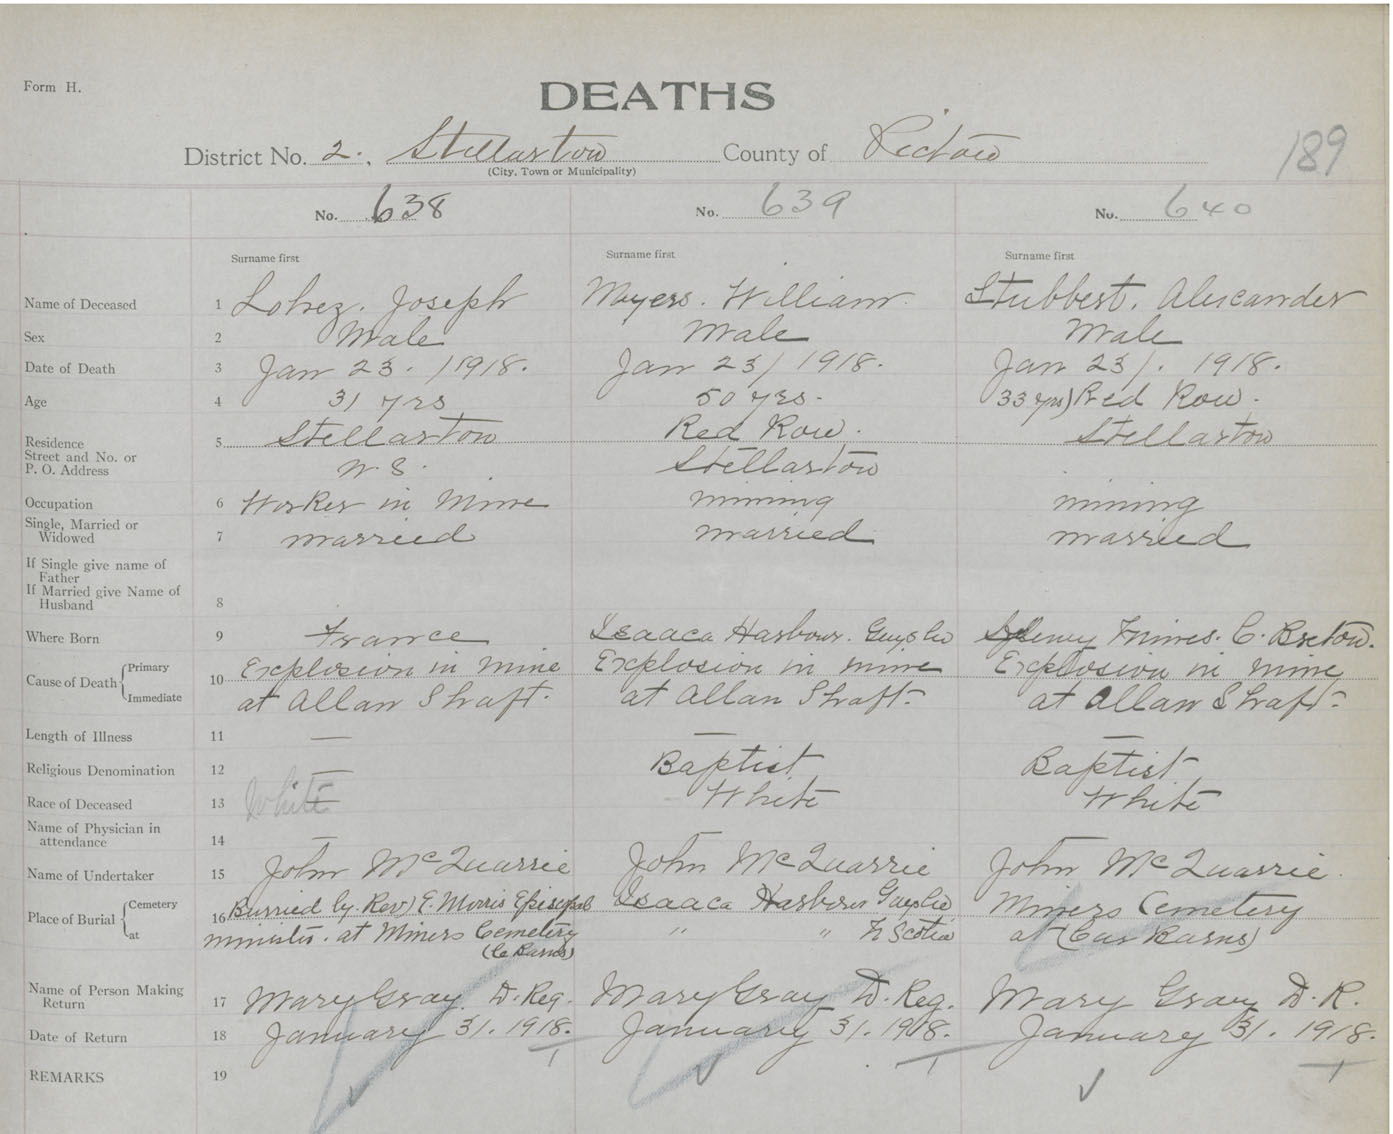 Form H.
DEATHS
189
District No. 2., Stellarton County of Pictou
(City, Town or Municipality)
No. 638 No. 639 No. 640
Surname first Surname first Surname first
Name of Deceased 1 Lohez. Joseph Mayers. William. Stubbert. Alexcander
Sex 2 Male Male Male
Date of Death 3 Jan 23. /1918. Jan 23/ 1918. Jan 23/. 1918.
Age 4 31 yrs 50 yrs. 33 yrs) Red Row.
Residence
Street and No. or
P. O. Address
5 Stellarton Red Row. Stellarton
N. S. Stellarton
Occupation 6 Worker in Mine mining mining
Single, Married or
Widowed
7 married married married
If Single give name of
Father
If Married give Name of
Husband
8
Where Born 9 France Isaacs Harbour. Guysbo Sydney Mines. C. Breton.
Cause of Death Primary
Immediate
10 Explosion in mine Explosion in mine Explosion in mine
at Allan Shaft. at Allan Shaft- at Allan Shaft-
Length of Illness 11 — — —
Religious Denomination 12 — Baptist Baptist
Race of Deceased 13 White White White
Name of Physician in
attendance
14 — — —
Name of Undertaker 15 John McQuarrie John McQuarrie John McQuarrie.
Place of Burial Cemetery
at
16 Burried by. Rev) E. Morris Episcopal Isaacs Harbour Guysbo Miners Cemetery
minister. at Miners Cemetery " " N Scotia at (Car Barns)
(Ca Barns)
Name of Person Making
Return
17 Mary Gray D. Reg. Mary Gray D. Reg. Mary Gray D. R.
Date of Return 18 January 31. 1918. January 31. 1918. January 31. 1918.
REMARKS 19